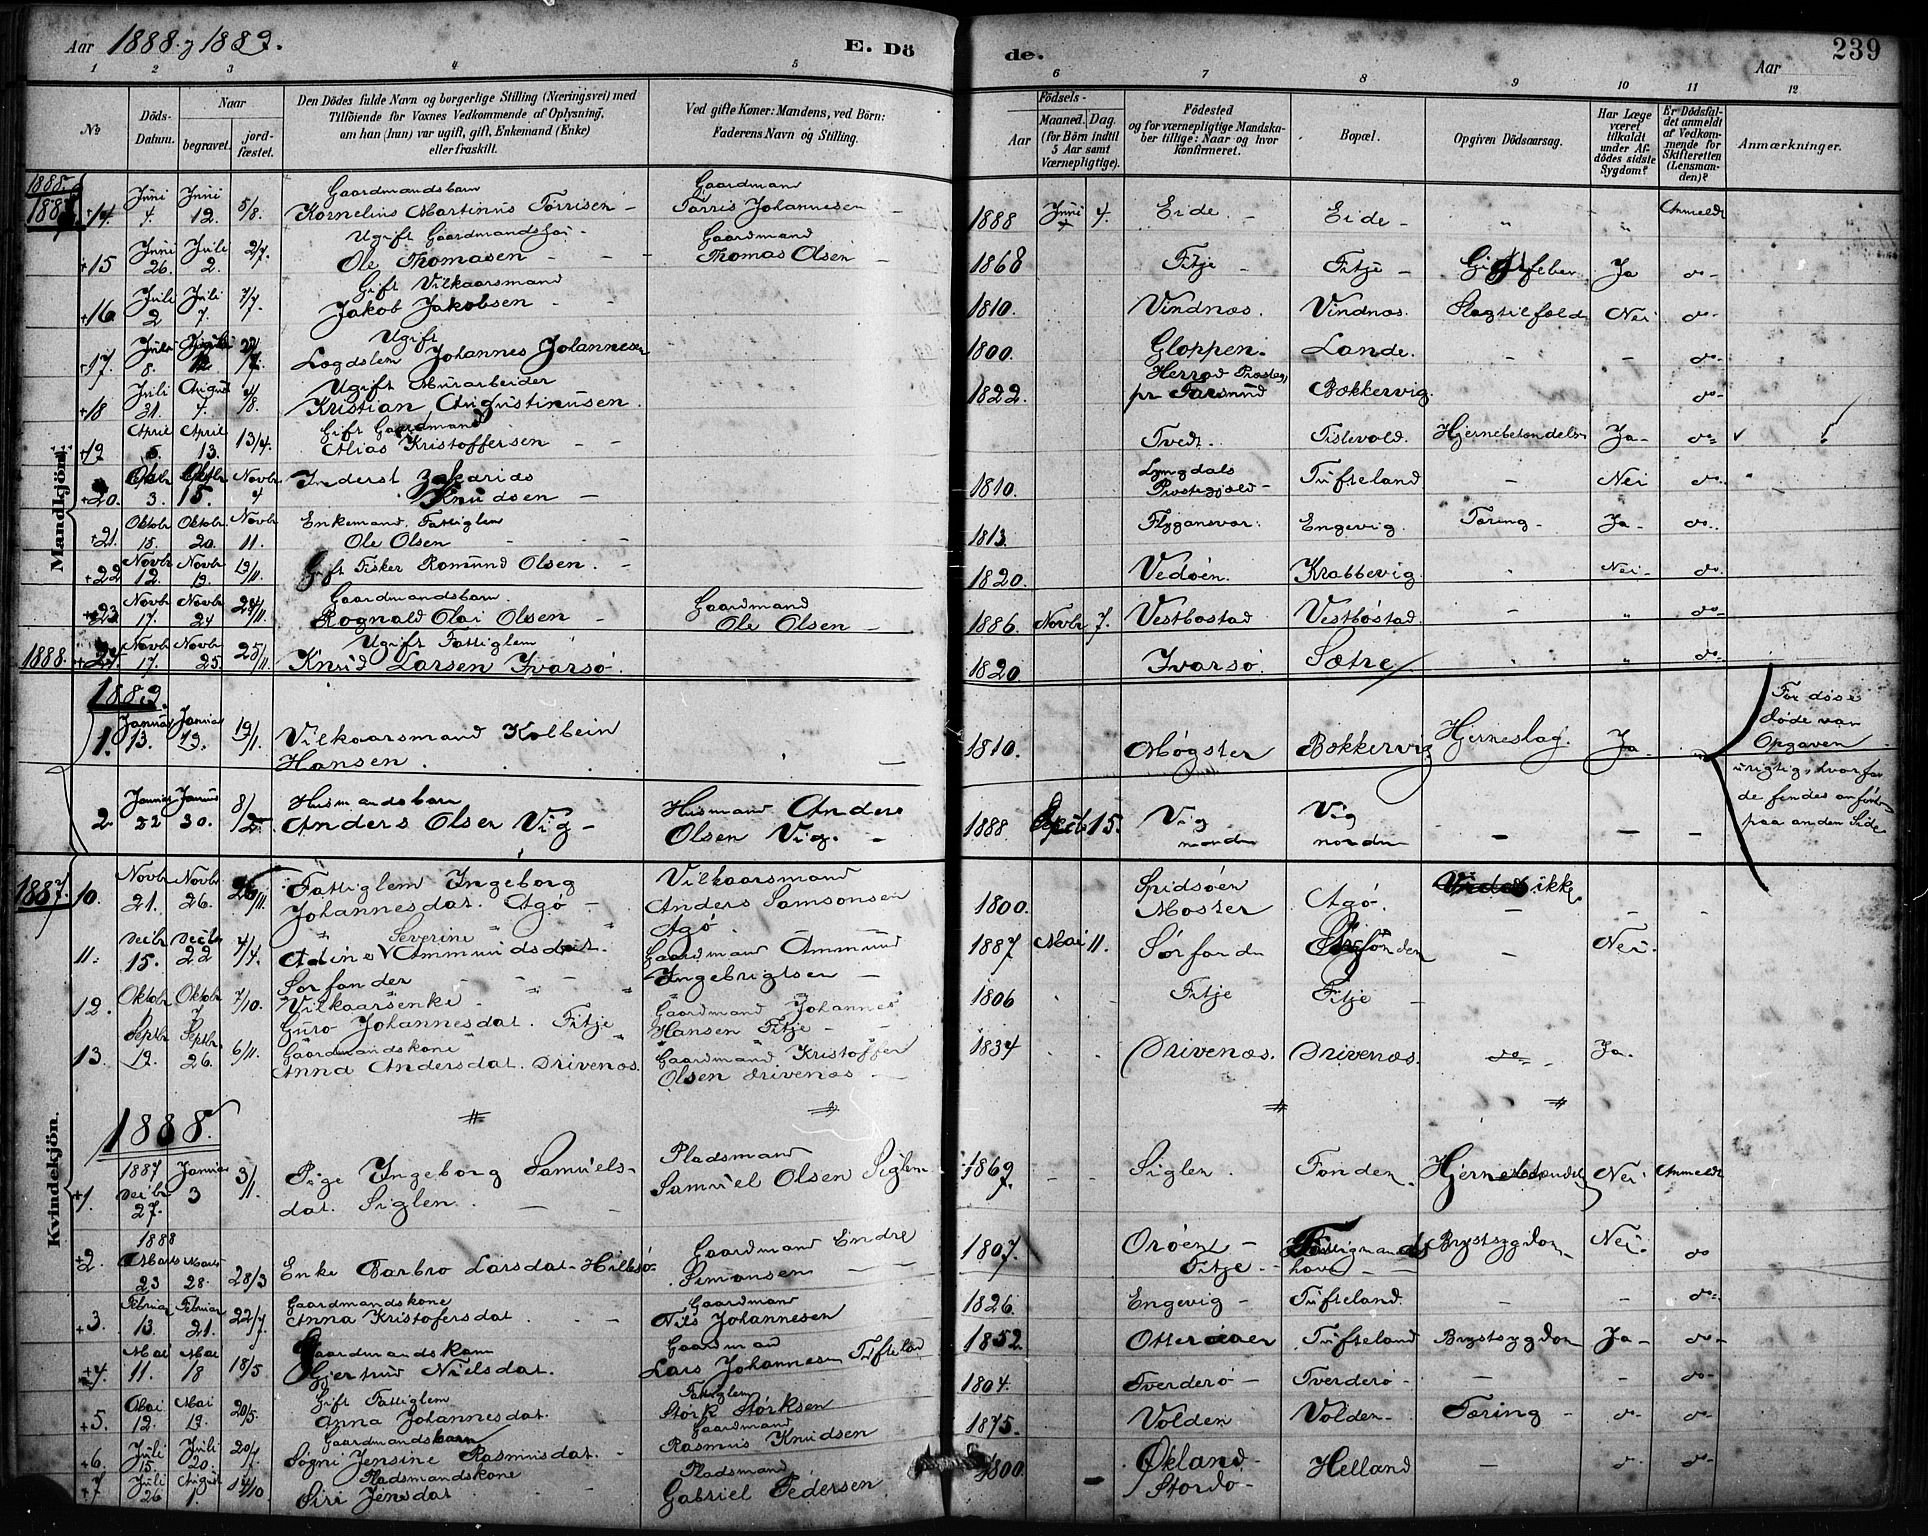 Aar 1888 og 1889.
E. Dö
de.
Aar
239
1 2 3 4 5 6 7 8 9 10 11 12
No
Döds-Datum.
Naar
begravet.
jordfæstet.
Den Dödes fulde Navn og borgerlige Stilling (Næringsvei) med
Tilföiende for Voxnes Vedkommende af Oplysning,
om han (hun) var ugift, gift, Enkemand (Enke)
eller fraskilt.
Ved gifte Koner: Mandens, ved Börn:
Faderens Navn og Stilling.
Födsels-
Aar
Maaned. Dag.
(for Börn indtil
5 Aar samt
Værnepligtige).
Födested
og for værnepligtige Mandska-
ber tillige: Naar og hvor
Konfirmeret.
Bopæl.
Opgiven Dödsaarsag.
Har Læge
været
tilkaldt
under Af-
dödes sidste
Sygdom?
Er Dödsfal-
det anmeldt
af Vedkom-
mende for
Skifteretten
(Lensman-
den)?
Anmærkninger.
Mandkjön.
1888.
+14. Juni 4. Juni 12. 5/8. Gaardmandsbarn
Kornelius Martinus Torrisen Gaardmand
Torris Johannesen 1888 Juni 4. Eide. Eide Anmeldt
+15 Juni 26. Juli 2. 2/7. Ugift Gaardmandssøn
Ole Thomasen Gaardmand
Thomas Olsen 1868 Fitje Fitje Gigtfeber Ja do
+16 Juli 2 Juli 7. 7/7 Gift Vilkaarsmand
Jakob Jakobsen 1810. Vindnæs. Vindnæs. Slagtilfæld Nei do
+17. Juli 8. 22/7. Ugift
Lægdslem Johannes Johannesen 1800. Gloppen. Lande. do
+18 Juli 31. August 4. 4/8. Ugift Murarbeider
Kristian Augustinusen. 1822. Herred Præsteg.
pr Farsund Bækkervig. do
+19 April 5. April 13. 13/4. Gift Gaardmand
Elias Kristoffersen Tvedt. Fislevold. Hjernebetændelse Ja do
+20. Oktbr 3. Oktbr 15. Novbr 4 Inderst Zakarias
Knudsen 1810. Lyngdals
Præstegjæld Tufteland Nei do
+21. Oktobr 15. Oktobr 20. Novbr 11. Enkemand, Fattiglem
Ole Olsen 1813. Flygansvær. Engevig. Tæring Ja do
+22 Novbr 12. Novbr 19. 19/11. Gift Fisker Romund Olsen. 1820. Vedøen. Krabbevig. Nei do
+23. Novbr 17. Novbr 24 24/11. Gaardmandsbarn.
Rognald Olai Olsen Gaardmand
Ole Olsen 1886. Novbr 7. Vestbøstad Vestbøstad. do
1888. +24. Novbr 17. Novbr 25. 25/11. Ugift Fattiglem
Knud Larsen Ivarsø. 1820 Ivarsø. Sætre do
1889.
1. Januar 13. Januar 19. 19/1. Vilkaarsmand Kolbein
Hansen. 1810. Møgster Bækkervig Hjerneslag. Ja
2. Januar 22 Januar 30. 8/5. Husmandsbarn
Anders Olsen Vig Husmand Anders
Olsen Vig. 1888 Septbr 15. Vig
nordre Vig
nordre
For disse
døde var
Opgaven
urigtig, hvorfor
de findes anførte
paa anden Side
Kvindekjön.
1887. 10. Novbr 21. Novbr 26. 26/11. Fattiglem Ingeborg
Johannesdat. Agø Vilkaarsmand
Anders Samsonsen
Agø. 1800. Spidsøen
Moster Agø. ikke
11. Decbr 15. Decbr 22 7/4. Severine
Adine Ammundsdat.
Sørfonden Gaardmand Ammund
Ingebrigtsen 1887 Mai 11. Sørfonden Sørfonden Nei
12. Oktobr Oktobr 7 7/10. Vilkaarsenke
Guro Johannesdat. Fitje Gaardmand Johannes
Hansen Fitje 1806 Fitje Fitje
13. Septbr 19. Septbr 26. 6/11. Gaardmandskone
Anna Andersdat. Drivenæs. Gaardmand Kristoffer
Olsen Drivenæs 1834 Drivenæs. Drivenæs. do Ja.
1888.
+1. 1887 Decbr 27. Januar 3 3/1. Pige Ingeborg Samuels-
dat. Siglen. Pladsmand
Samuel Olsen Siglen 1869. Siglen. Fonden. Hjernebetændelse Nei Anmeldt
+2. 1888 Marts 23 Marts 28. 28/3 Enke Barbro Larsdat. Hillesø Gaardmand Endre
Simonsen 1807. Orøen
Fitje Fattigmands
have Brystsygdom Nei. do
+3. Februar 13. Februar 21. 22/7. Gaardmandskone
Anna Kristofersdat. Gaardmand
Nils Johannesen 1826. Engevig Tufteland. do
+4. Mai 11. Mai 18 18/5. Gaardmandskone
Gjertrud Nielsdat. Gaardmand
Lars Johannesen Tufteland 1852. Otteraaer Tufteland. Brystsygdom Ja do
+5. Mai 12. Mai 19. 20/5. Gift Fattiglem
Anna Johannesdat. Fattiglem
Størk Størksen 1804. Tverderø Tverderø do
+6. Juli 15. Juli 20. 20/7. Gaardmandsbarn
Søgni Jensine Rasmusdat. Gaardmand
Rasmus Knudsen 1875. Volden Volden Tæring do do
+7 Juli 26 August 1. 14/10. Pladsmandskone
Siri Jensdat. Pladsmand
Gabriel Pedersen 1800. Økland
Stordø Helland do